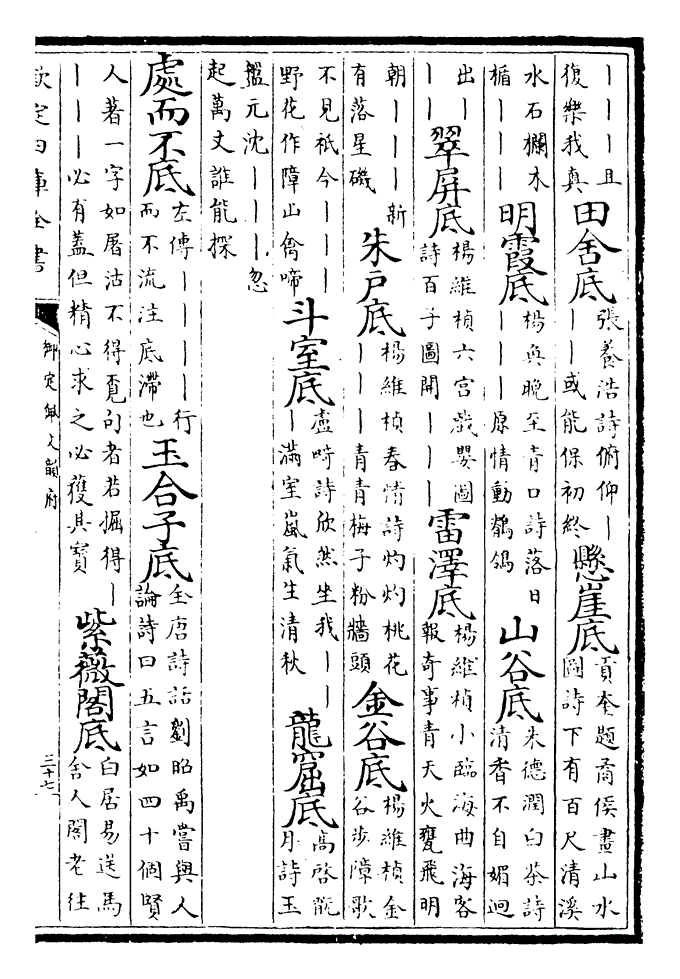 ｜｜｜且復樂我真 田舍底 張養浩詩俯仰｜｜｜或能保初終 懸崖底 貢奎題喬侯畫山水圖詩下有百尺清溪
水石欄木楯｜｜｜ 明霞底 楊奐晚至青口詩落日｜｜｜原情動鶺鴒 山谷底 朱德潤白茶詩清香不自媚迥
出｜｜｜ 翠屏底 楊維楨六宮戲嬰圖詩百子圖開｜｜｜ 雷澤底 楊維楨小臨海曲海客報奇事青天火甕飛明
朝｜｜｜新有落星磯 朱戶底 楊維楨春情詩灼灼桃花｜｜｜青青梅子粉牆頭 金谷底 楊維楨金谷步障歌
不見祇今｜｜｜野花作障山禽啼 斗室底 盧琦詩欣然坐我｜｜｜滿室嵐氣生清秋 龍窟底 高啓翫月詩玉
盤元沈｜｜｜忽起萬丈誰能探
處而不底 左傳｜｜｜｜行而不流注底滯也 玉合子底 全唐詩話劉昭禹嘗與人論詩曰五言如四十個賢
人著一字如屠沽不得覓句者若掘得｜｜｜｜必有蓋但精心求之必獲其寶 紫薇閣底 白居易送馬舍人閣老往
欽定四庫全書
御定佩文韻府
三十七